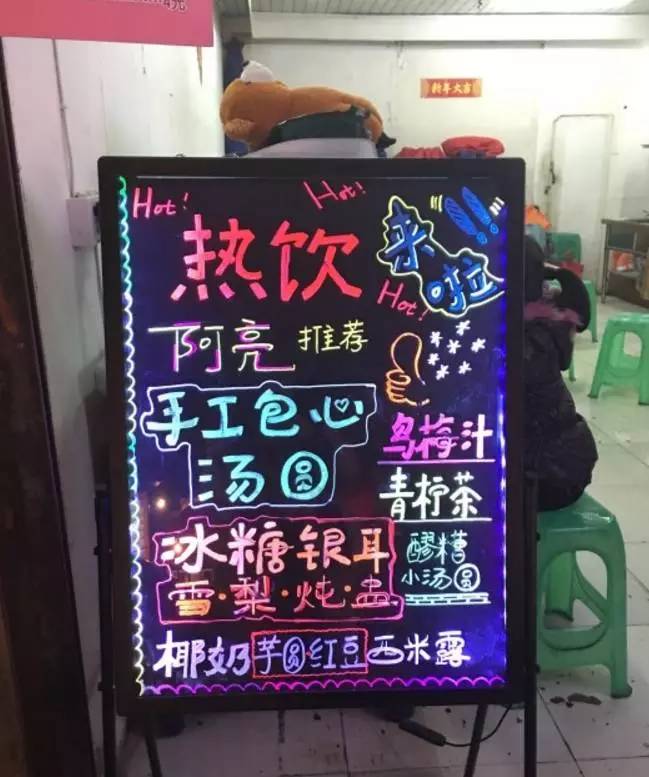 Hot!
Hot!
热饮
来啦!!
Hot!
阿亮 推荐
手工包心
汤圆
乌梅汁
青柠茶
冰糖银耳
雪·梨·炖·盅
醪糟
小汤圆
椰奶芋圆·红豆西米露
新年大吉